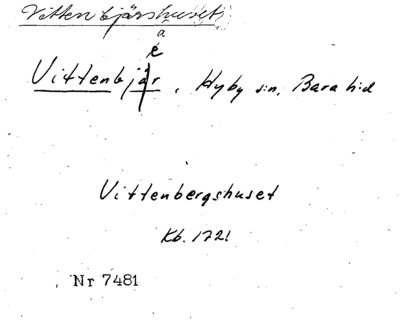 Vittenbjärshuset
a
e
Vittenbjär, Hyby sn, Bara hd
Vittenbergshuset
Kb. 1721
Nr 7481